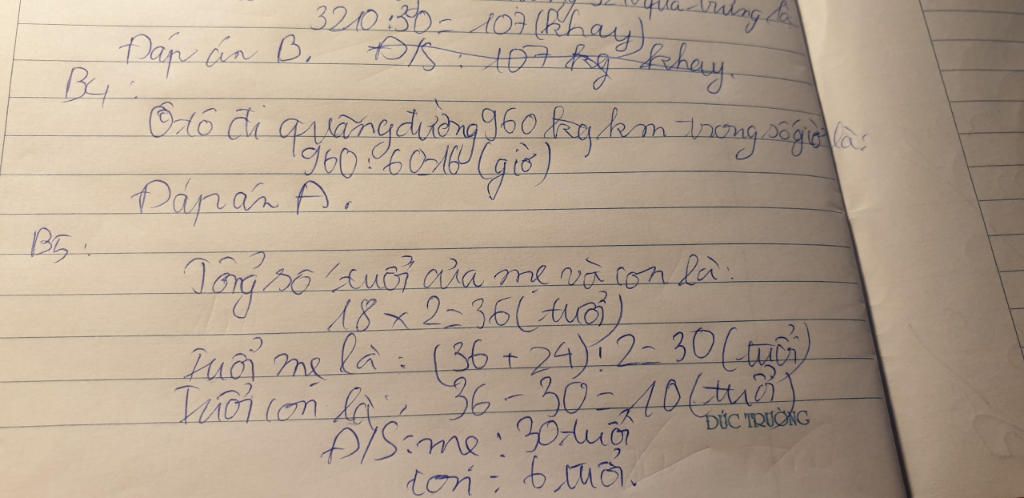 quả trứng là
3210:30=107(khay)
Đáp án B. Đ/S: 107 kg khay.
B4:
Ô tô đi quãng đường 960 kg km trong số giờ là:
960:60=16 (giờ)
Đáp án A.
B5:
Tổng số tuổi của mẹ và con là:
18 × 2=36( tuổi)
Tuổi mẹ là: (36 + 24):2=30(tuổi)
Tuổi con là: 36 - 30 = 10 (tuổi)
ĐỨC TRƯỜNG
Đ/S: mẹ: 30 tuổi
con: 6 tuổi.